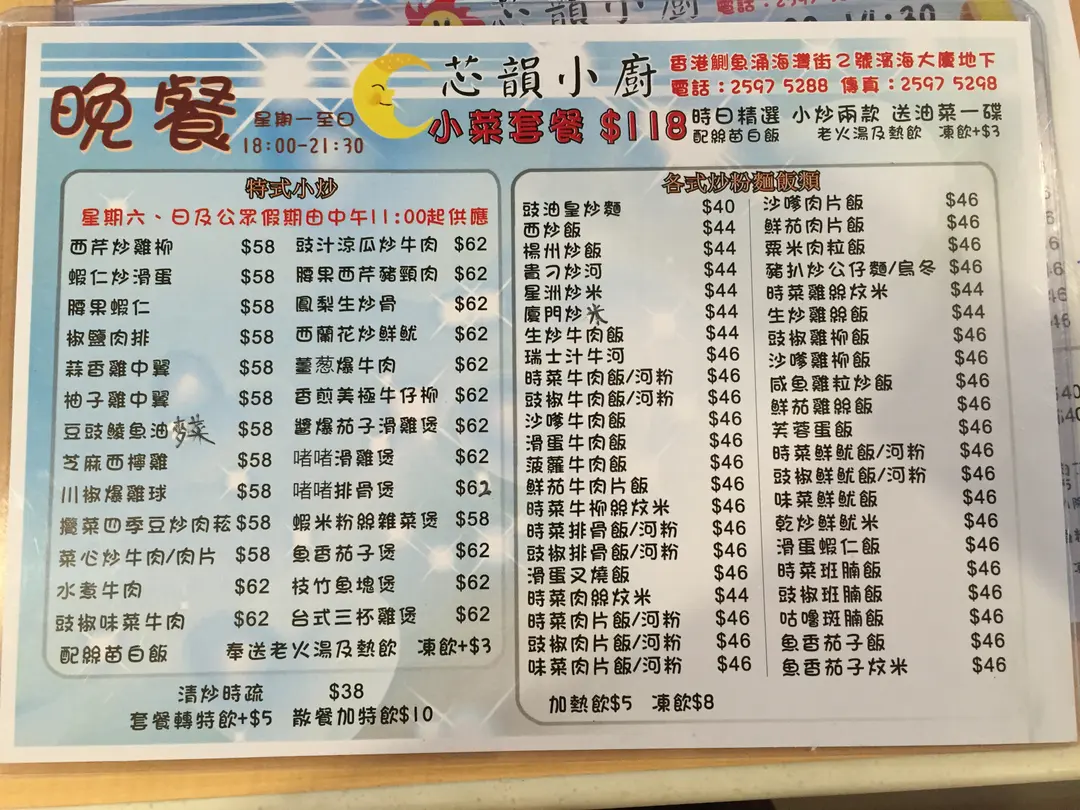 芯韻小廚
電話：2597
晚餐
星期一至日
18:00-21:30
芯韻小廚
香港鰂魚涌海灣街2號濱海大廈地下
電話：2597 5288 傳真：2597 5298
小菜套餐 $118
時日精選 小炒兩款 送油菜一碟
配絲苗白飯 老火湯及熱飲 凍飲+$3
特式小炒
星期六、日及公眾假期由中午11:00起供應
西芹炒雞柳 $58
蝦仁炒滑蛋 $58
腰果蝦仁 $58
椒鹽肉排 $58
蒜香雞中翼 $58
柚子雞中翼 $58
豆豉鯪魚油麥菜 $58
芝麻西檸雞 $58
川椒爆雞球 $58
欖菜四季豆炒肉菘 $58
菜心炒牛肉/肉片 $58
水煮牛肉 $62
豉椒味菜牛肉 $62
豉汁涼瓜炒牛肉 $62
腰果西芹豬頸肉 $62
鳳梨生炒骨 $62
西蘭花炒鮮魷 $62
薑葱爆牛肉 $62
香煎美極牛仔柳 $62
醬爆茄子滑雞煲 $62
啫啫滑雞煲 $62
啫啫排骨煲 $62
蝦米粉絲雜菜煲 $58
魚香茄子煲 $62
枝竹魚塊煲 $62
台式三杯雞煲 $62
配絲苗白飯 奉送老火湯及熱飲 凍飲+$3
清炒時疏 $38
套餐轉特飲+$5 散餐加特飲$10
各式炒粉麵飯類
豉油皇炒麵 $40
西炒飯 $44
楊州炒飯 $44
貴刁炒河 $44
星洲炒米 $44
廈門炒米 $44
生炒牛肉飯 $44
瑞士汁牛河 $46
時菜牛肉飯/河粉 $46
豉椒牛肉飯/河粉 $46
沙嗲牛肉飯 $46
滑蛋牛肉飯 $46
菠蘿牛肉飯 $46
鮮茄牛肉片飯 $46
時菜牛柳絲炆米 $46
時菜排骨飯/河粉 $46
豉椒排骨飯/河粉 $46
滑蛋叉燒飯 $46
時菜肉絲炆米 $44
時菜肉片飯/河粉 $46
豉椒肉片飯/河粉 $46
味菜肉片飯/河粉 $46
沙嗲肉片飯 $46
鮮茄肉片飯 $46
粟米肉粒飯 $46
豬扒炒公仔麵/烏冬 $46
時菜雞絲炆米 $44
生炒雞絲飯 $44
豉椒雞柳飯 $46
沙嗲雞柳飯 $46
咸魚雞粒炒飯 $46
鮮茄雞絲飯 $46
芙蓉蛋飯 $46
時菜鮮魷飯/河粉 $46
豉椒鮮魷飯/河粉 $46
味菜鮮魷飯 $46
乾炒鮮魷米 $46
滑蛋蝦仁飯 $46
時菜班腩飯 $46
豉椒班腩飯 $46
咕嚕斑腩飯 $46
魚香茄子飯 $46
魚香茄子炆米 $46
加熱飲$5 凍飲$8